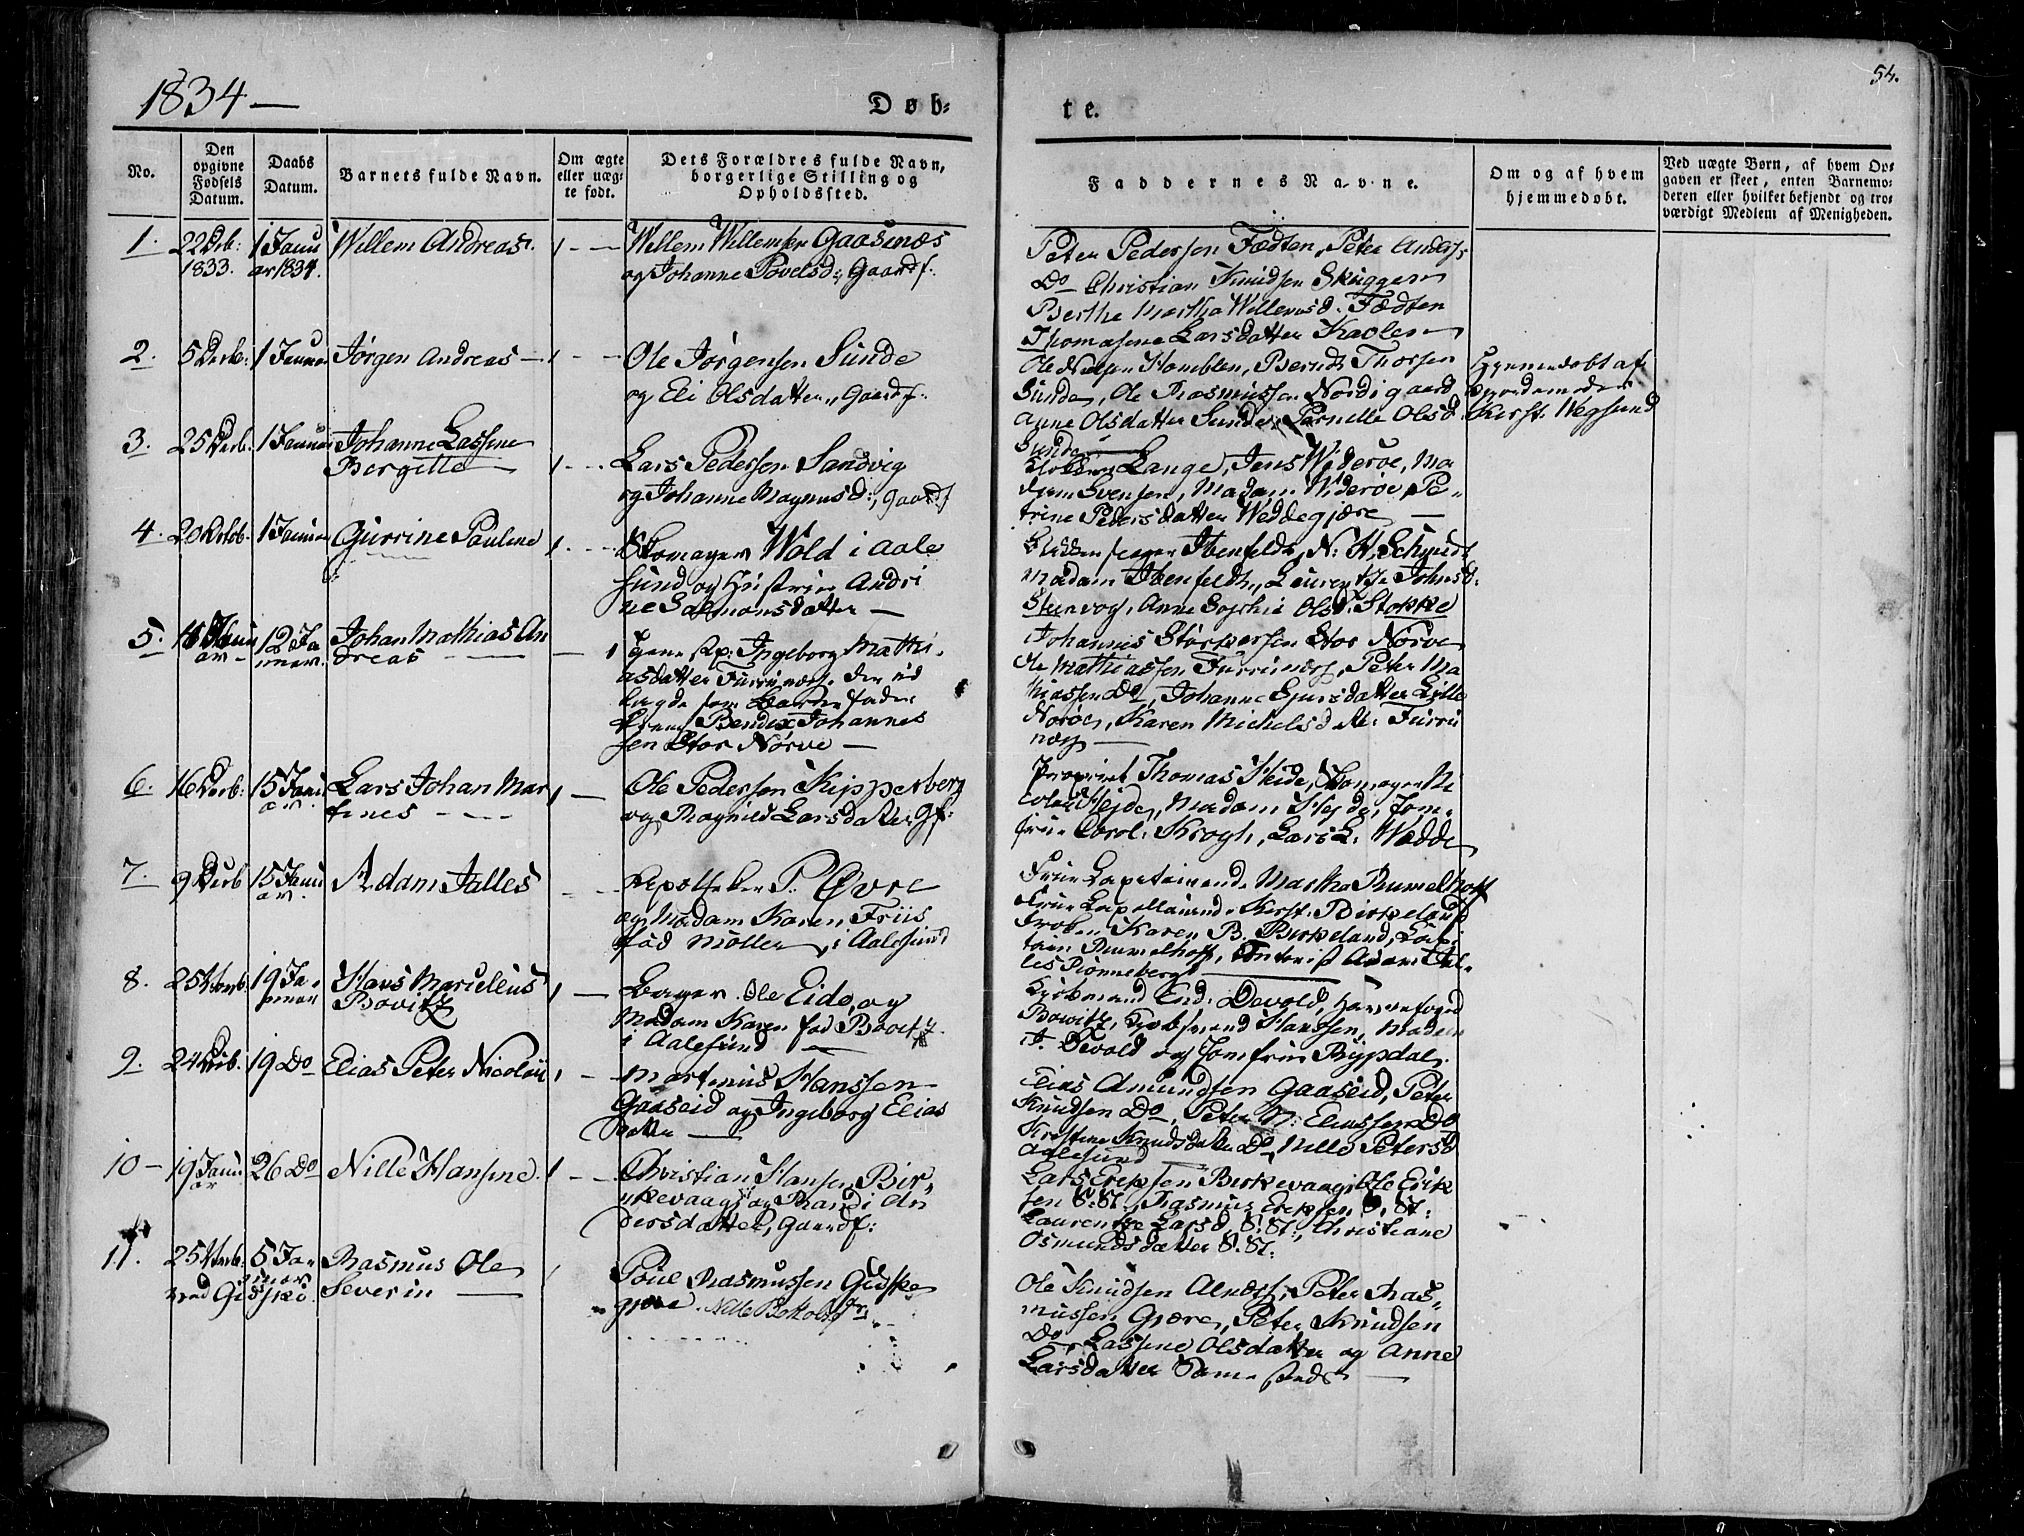 1834 —
Døb-
te.
54.
No.
Den opgivne Fødsels Datum.
Daabs Datum.
Barnets fulde Navn.
Om ægte eller uæg-te født.
Dets Forældres fulde Navn, borgerlige Stilling og Opholdssted.
Faddernes Navne.
Om og af hvem hjemmedøbt.
Ved uægte Børn, af hvem Op-
gaven er skeet, enten Barnemo-
deren eller hvilket bekjendt og tro-
værdigt Medlem af Menigheden.
1. 22 Deb: 1833. 1 Janu ar 1834. Willem Andreas. 1 - -
Willem Willemsen Gaasenæs
og Johanne Povelsd:, Gaardf:
Peter Pedersen Fædten, Peter Anders:
Do Christian Knudsen Skuggen
Berthe Martha Willemsd. Fædten
Thomasene Larsdatter Kaalen
2. 5 Decb: 1 Januar Jørgen Andreas — 1 - -
Ole Jørgensen Sunde
og Eli Olsdatter, Gaardf:
Ole Nilsen Humblen, Berndt Thorsen
Sunde, Ole Rasmussen Nordigaard
Anne Olsdatter Sunde, Pernelle Olsd.
Sunde
Hjemmedøbt af
Gjordemoder
Kerst. Wegsund
3. 25 Decb. 1 Januar Johanne Lassine
Bergitte — 1 - -
Lars Pedersen Sandvig
og Johanne Magnusd:, Gaardf
Klokker Lange, Jens Widerøe, Ma
dam Svensen, Madam Widerøe, Pe-
trine Pedersdatter Weddegjære —
4. 20 Octob. 1 Januar Gurrine Pauline 1 - -
Skomager Wold i Aale
sund og Hustrue Andri
ne Salmonsdatter —
Ibenfeldt, N: H. Schmidt
Madam Ibenfeldt, Laurentze Johnsd:
Steenvog, Anne Sophie Olsd: Stokke
5. Janu ar - 12 Ja nuar. Johan Mathias An
dreas — — 1
Ingeborg Mathi-
asdatter Furrunæs. der ud
lagde som Barnefader
Bendix Johannes
sen Stor Nørve —
Johannes Størkersen Stor Nørve
Ole Mathiassen Furrunæss, Peter Ma
thiassen Do, Johanne Sjursdatter Lille
Nørøe, Karen Michelsdtr: Furru
næss —
6. 16 Decb: 15 Janu ar. Lars Johan Mar
tines - - - 1 —
Ole Pedersen Kipperberg
og Ragnild Larsdatter Gf:
Propriet. Thomas Heide, Skomager Ni
colai Hejde, Madam Hejde, Jom-
frue Carol: Krogh, Lars L: Wedde
7. 9 Decb 15 Janu ar. Adam Talles - -
Apotheker P. Øvre
og Madam Karen Friis
fød Møller, i Aalesund
Frue Capitainende Martha Rumelhoff
Frue Capellainende Kerst. Birkeland
Frøken Karen B. Birkeland, Capi
tain Rumelhoff, Adam Tal-
les Rønneberg
8. 25 19 Ja- nuar Hans Marcelius
Bovitz 1 —
Bager Ole Eide, og
Madam Karen fød Bovitz
i Aalesund —
Kjøbmand End: Devold, Havnefoged
Bowitz, Kjøbmand Hanssen, Madam
A. Devold og Jomfrue Rypdal.
9. 24 Deb. 19 Do Elias Peter Nicolai 1 —
Martinus Hanssen
Gaaseid og Ingeborg Elias
datter —
Elias Amundsen Gaaseid, Peter
Knudsen Do, Peter N: Eliassen Do
Kristine Knudsdatter Do, Nille Petersd
Aalesund
10 - 19 Janu ar 26 Do Nille Hansine. 1 - -
Christian Hansen Bir-
kevaag og Randi An
dersdatter, Gaardf:
Lars Erichsen Birkevaag, Ole Erik
sen S: St:, Rasmus Erichsen S. St:
Laurentze Larsd. S: St:, Christiane
Osmundsdatter S: St:
11. 25 5 Ja- nuar Rasmus Ole
ved Giskø. Severin — 1
Poul Rasmussen Giske
gjære. Nille Bottolfsdtr
Ole Knudsen Alnæss, Peter Ras-
mussen Gjære, Peter Knudsen
Do Lassine Olsdatter og Anne
Larsdatter Samme steds —